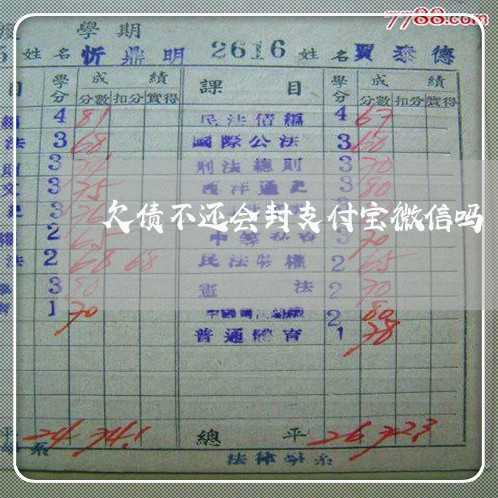 7788.com
學期
姓名 忻鼎明 2616 姓名 賈泰德
目 學分 成績 課目 學分 成績
分數 扣分 實得 分數 扣分 實得
4 81 民法債編 4 67
法 3 68 國際公法 3 60
3 刑法總則 3 70
3 75 西洋通史 3 80
3
欠债不还会封支付宝微信吗
2 70
法 2 68 68 民法物權 2 65
3 80 憲法 2 70
1 70 2 80
普通體育 1 78
平 24 74.1 總平 26 72.3
系 法律學系